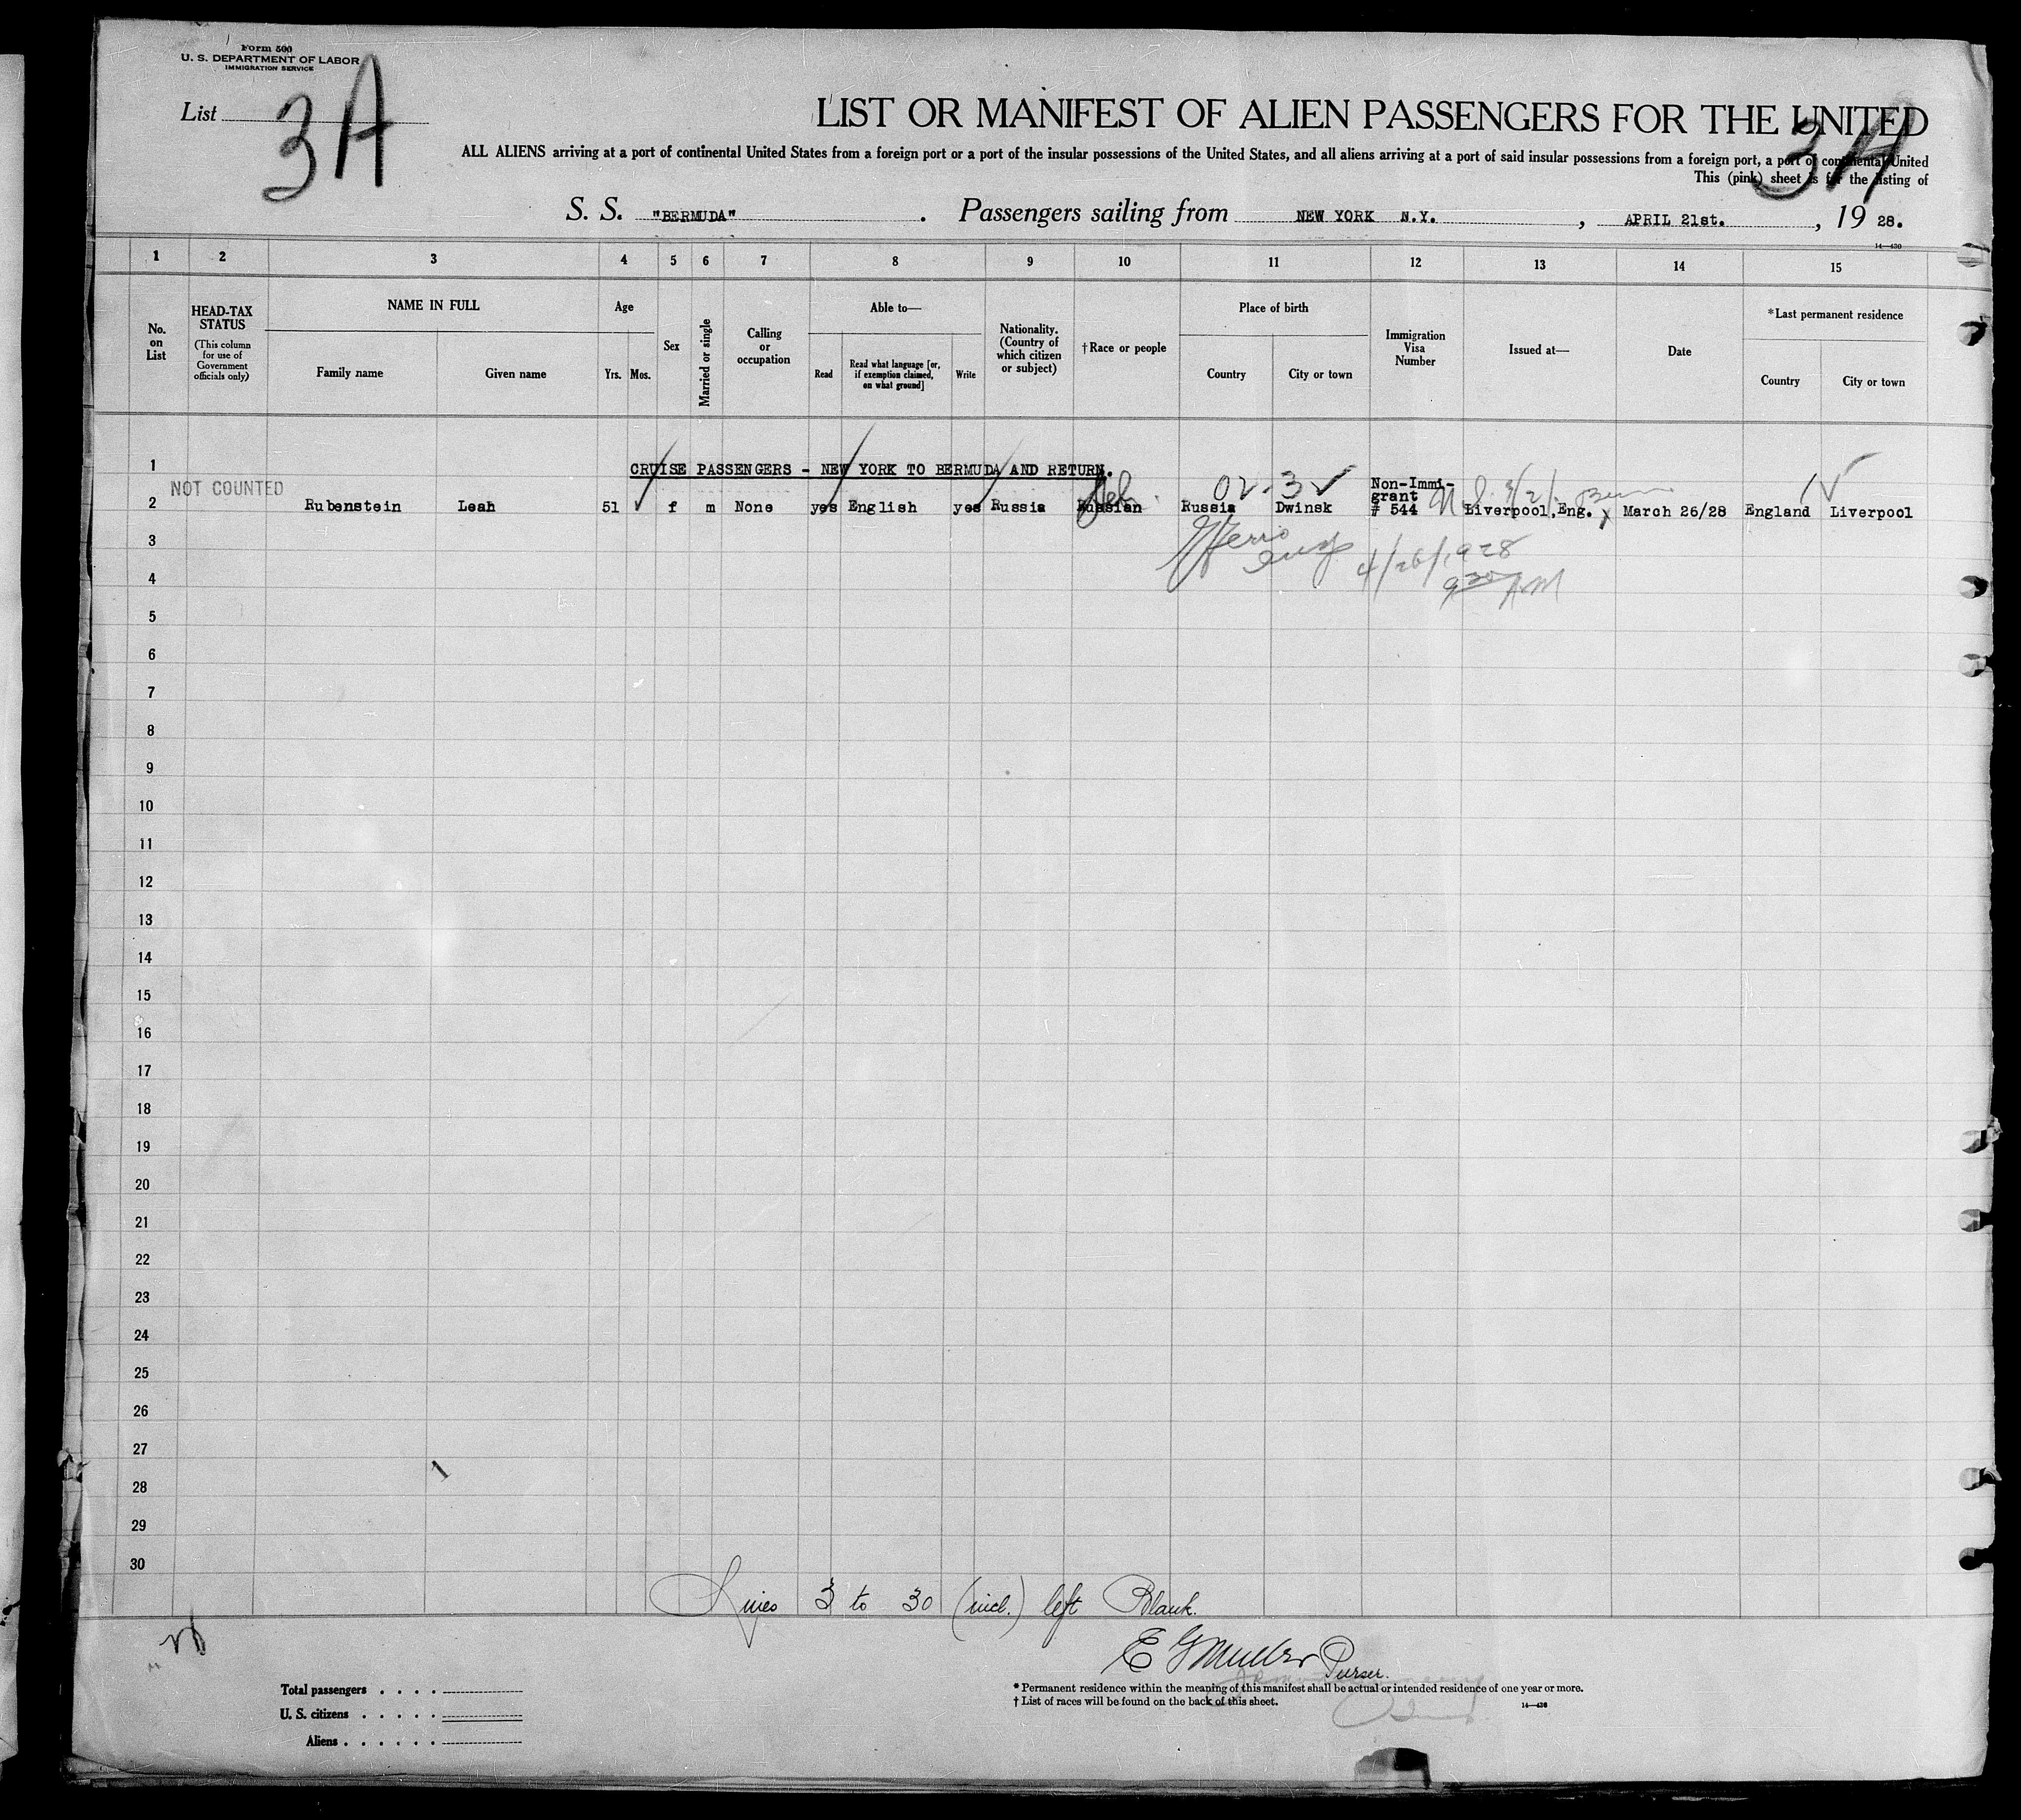 Form 500
U. S. DEPARTMENT OF LABOR
IMMIGRATION SERVICE
List 3A
LIST OR MANIFEST OF ALIEN PASSENGERS FOR THE UNITED
3A
ALL ALIENS arriving at a port of continental United States from a foreign port or a port of the insular possessions of the United States, and all aliens arriving at a port of said insular possessions from a foreign port, a port of continental United
This (pink) sheet is for the listing of
S. S. "BERMUDA". Passengers sailing from NEW YORK N.Y., APRIL 21st., 19 28.
14—430
1 2 3 4 5 6 7 8 9 10 11 12 13 14 15
No. on List
HEAD-TAX STATUS
(This column for use of Government officials only)
NAME IN FULL
Family name Given name
Age
Yrs. Mos.
Sex
Married or single
Calling or occupation
Able to—
Read Read what language [or, if exemption claimed, on what ground] Write
Nationality. (Country of which citizen or subject)
†Race or people
Place of birth
Country City or town
Immigration Visa Number
Issued at—
Date
*Last permanent residence
Country City or town
1 CRUISE PASSENGERS - NEW YORK TO BERMUDA AND RETURN.
NOT COUNTED
2 Rubenstein Leah 51 f m None yes English yes Russia Russian Heb. Russia Dwinsk Non-Immigrant # 544 Liverpool,Eng. March 26/28 England Liverpool
3
4/26/1928
4
9 30 AM
5
6
7
8
9
10
11
12
13
14
15
16
17
18
19
20
21
22
23
24
25
26
27
28
29
30
Lines 3 to 30 (incl.) left Blank.
E G Muller Purser.
Total passengers . . . .
U. S. citizens . . . . .
Aliens . . . . . .
* Permanent residence within the meaning of this manifest shall be actual or intended residence of one year or more.
† List of races will be found on the back of this sheet.
14—430